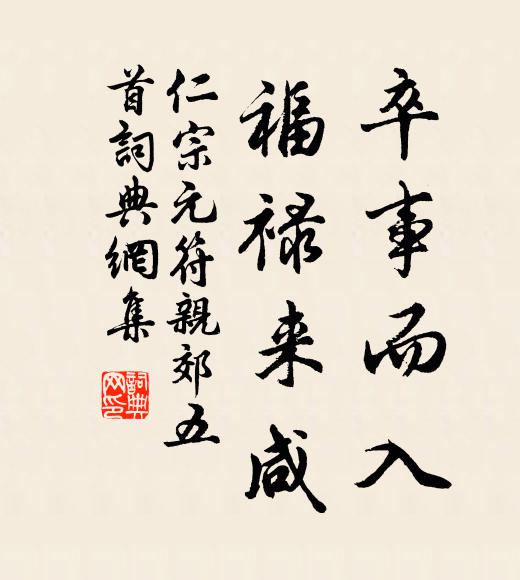 卒事而入
福禄来咸
仁宗元符親郊五
首詞典網集
詞典
网印